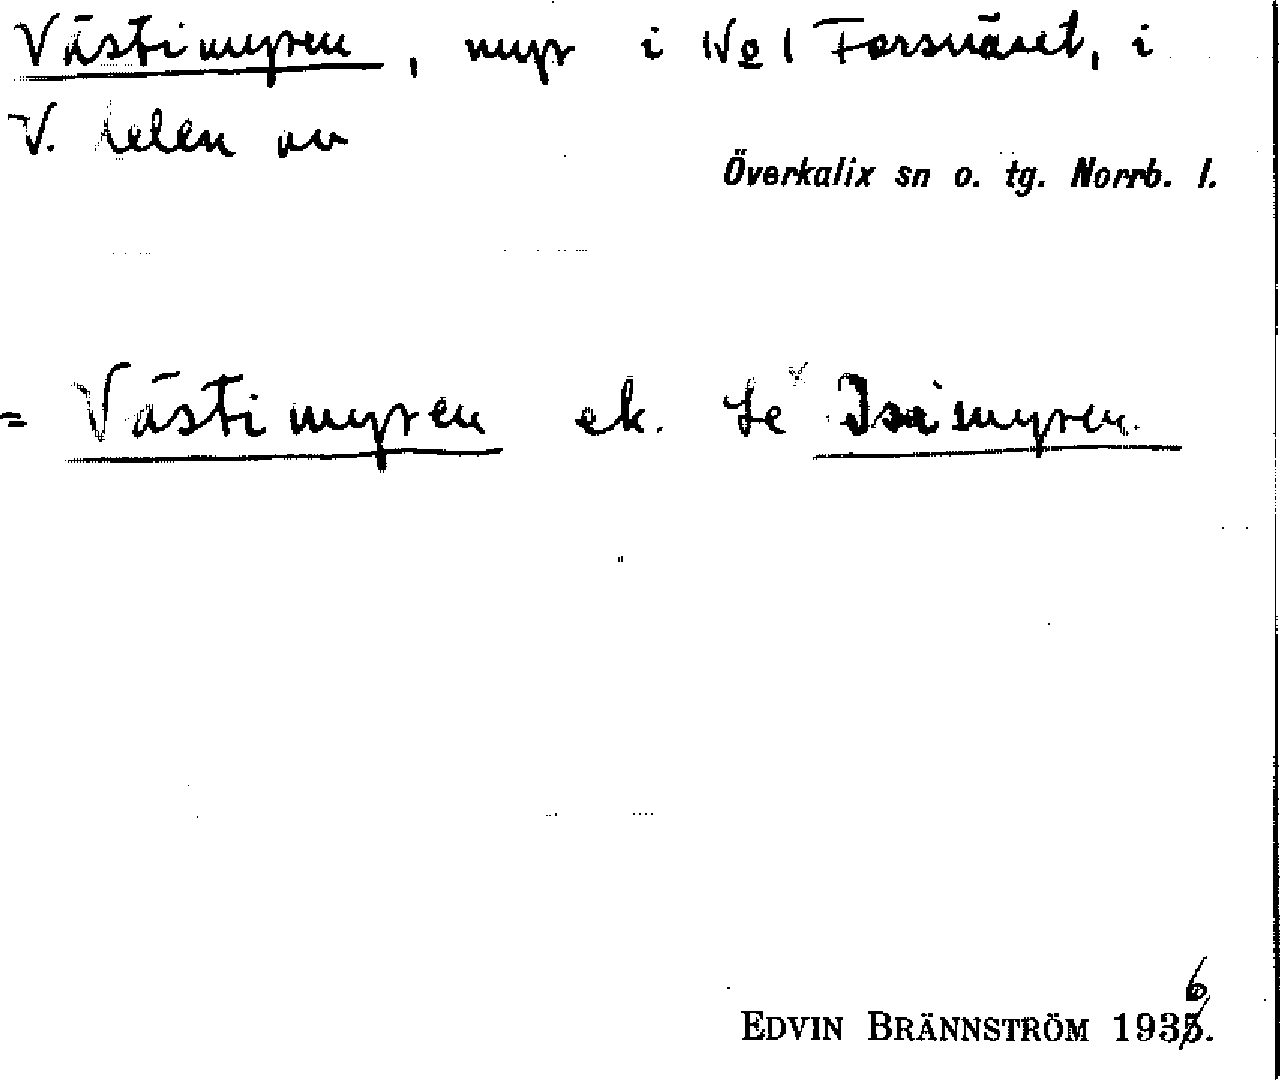 Västimyren, myr i No 1 Forsnäset, i
V. delen av
Överkalix sn o. tg. Norrb. l.
= Västimyren ek. Se Isaimyren.
EDVIN BRÄNNSTRÖM 1936.